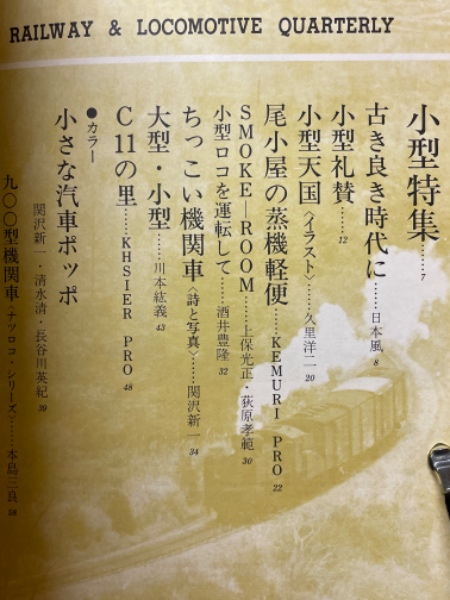 RAILWAY & LOCOMOTIVE QUARTERLY
小型特集……7
古き良き時代に……日本風 8
小型礼賛……12
小型天国〈イラスト〉……久里洋二 20
尾小屋の蒸機軽便……KEMURI PRO 22
SMOKE—ROOM……上保光正・荻原孝範 30
小型ロコを運転して……酒井豊隆 32
ちっこい機関車〈詩と写真〉……関沢新一 34
大型・小型……川本紘義 43
C11の里……KHSIER PRO 48
●カラー
小さな汽車ポッポ
関沢新一・清水清・長谷川英紀 39
九〇〇型機関車〈ナツロコ・シリーズ〉……本島三良 58